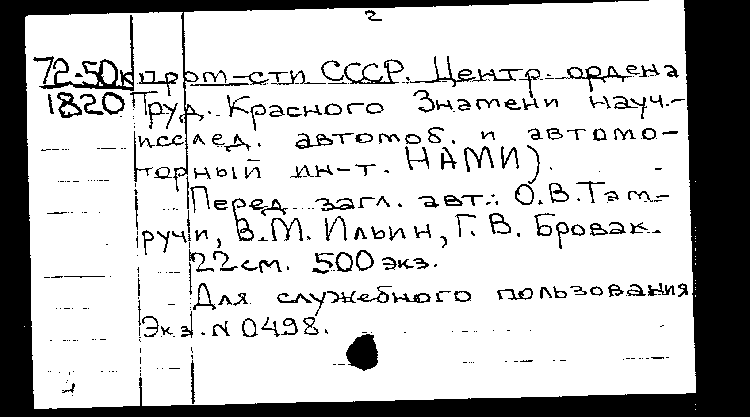 2
72-50к пром-сти СССР. Центр. ордена
1820 Труд. Красного Знамени науч.-
исслед. автомоб. и автомо-
торный ин-т. НАМИ).
Перед загл. авт.: О.В.Там-
ручи, В.М. Ильин, Г.В. Бровак.
22см. 500 экз.
Для служебного пользования
Экз. N 0498.